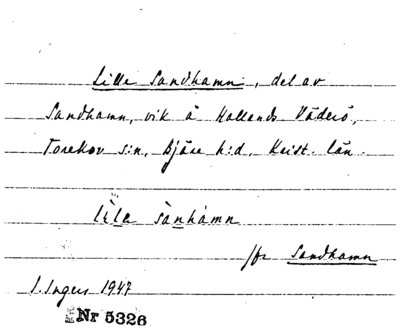 Lille Sandhamn, del av
Sandhamn, vik å Hallands Väderö,
Torekov s:n, Bjäre h:d, Krist. län.
lìla sànhámn
jfr Sandhamn
I. Ingers 1947
Nr 5326